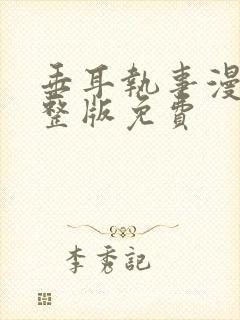 垂耳執事漫
整版免費
李秀記